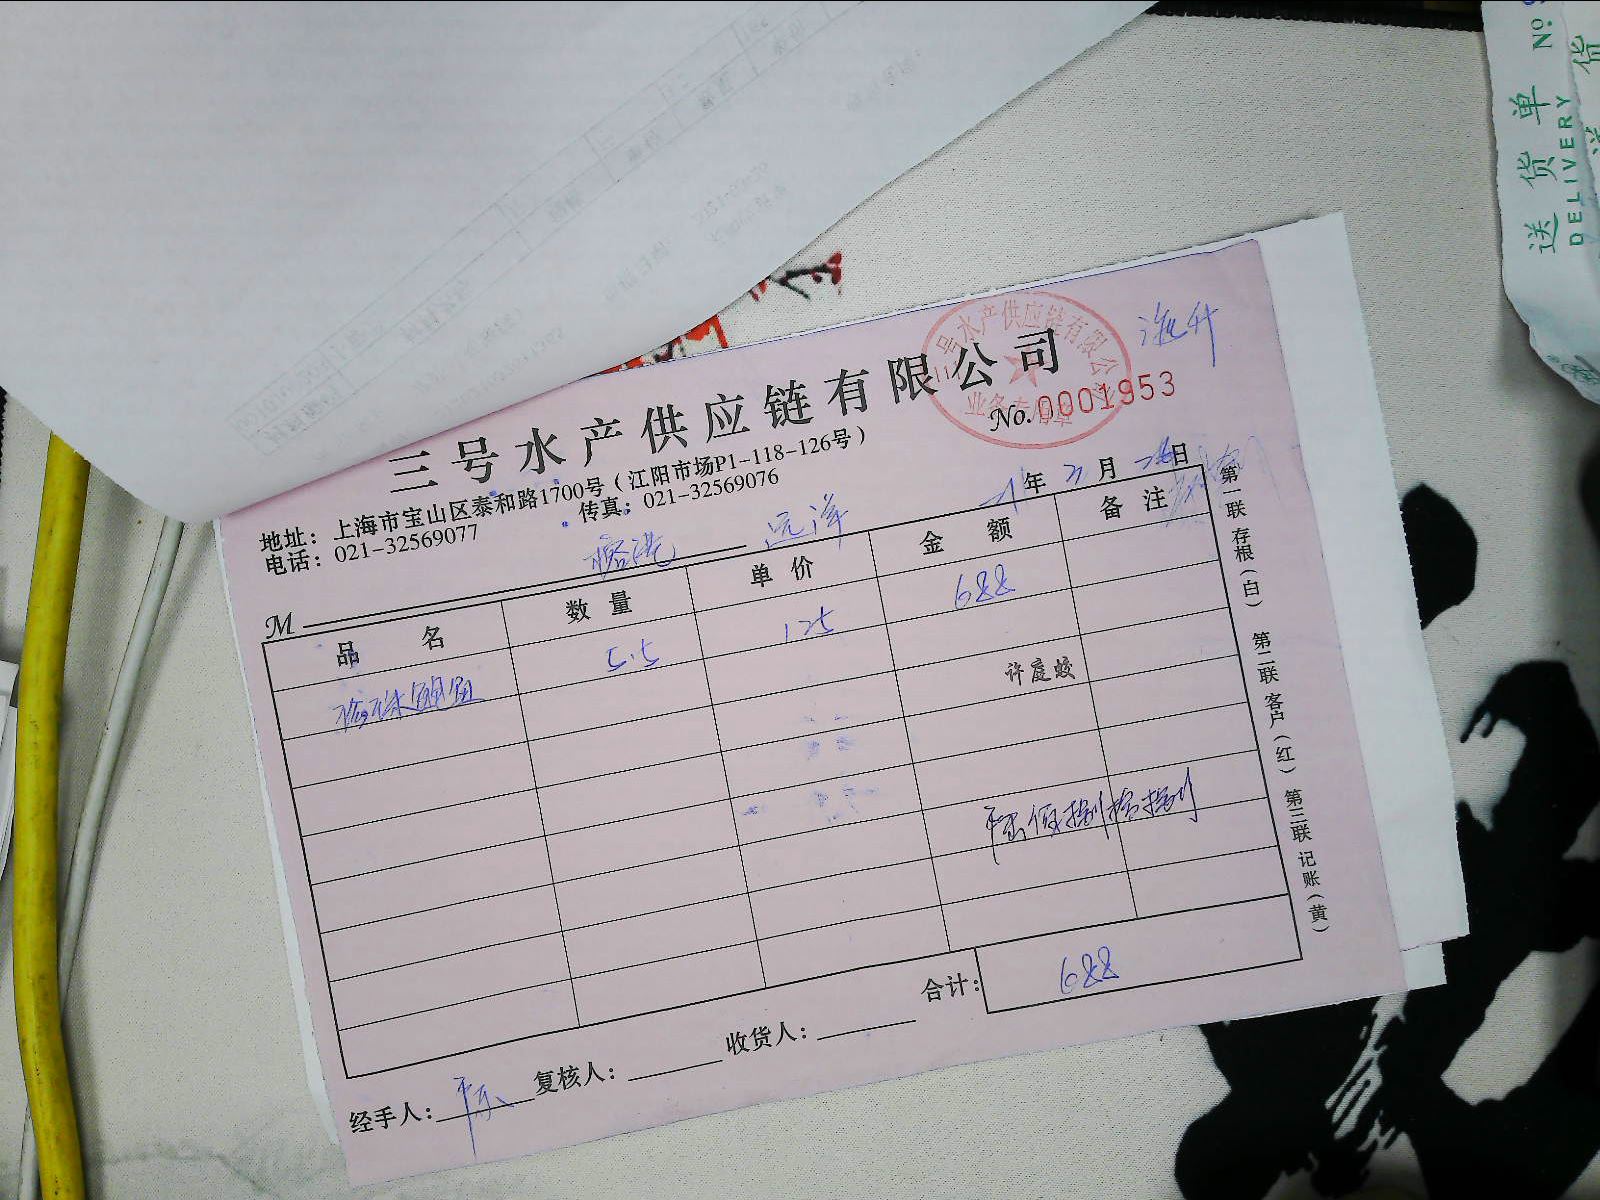 三号水产供应链有限公司
三号水产供应链有限公司
业务专用章
海升
No.0001953
地址：上海市宝山区泰和路1700号（江阳市场P1-118-126号）
电话：021-32569077 传真：021-32569076
年 3 月 日
M 榕港 远洋
品名 数量 单价 金额 备注
珍珠鲳 5.5 125 688
许庭蛟
合计：688
经手人：陈 复核人： 收货人：
第一联存根（白） 第二联客户（红） 第三联记账（黄）
送货单 No.
DELIVERY
送货